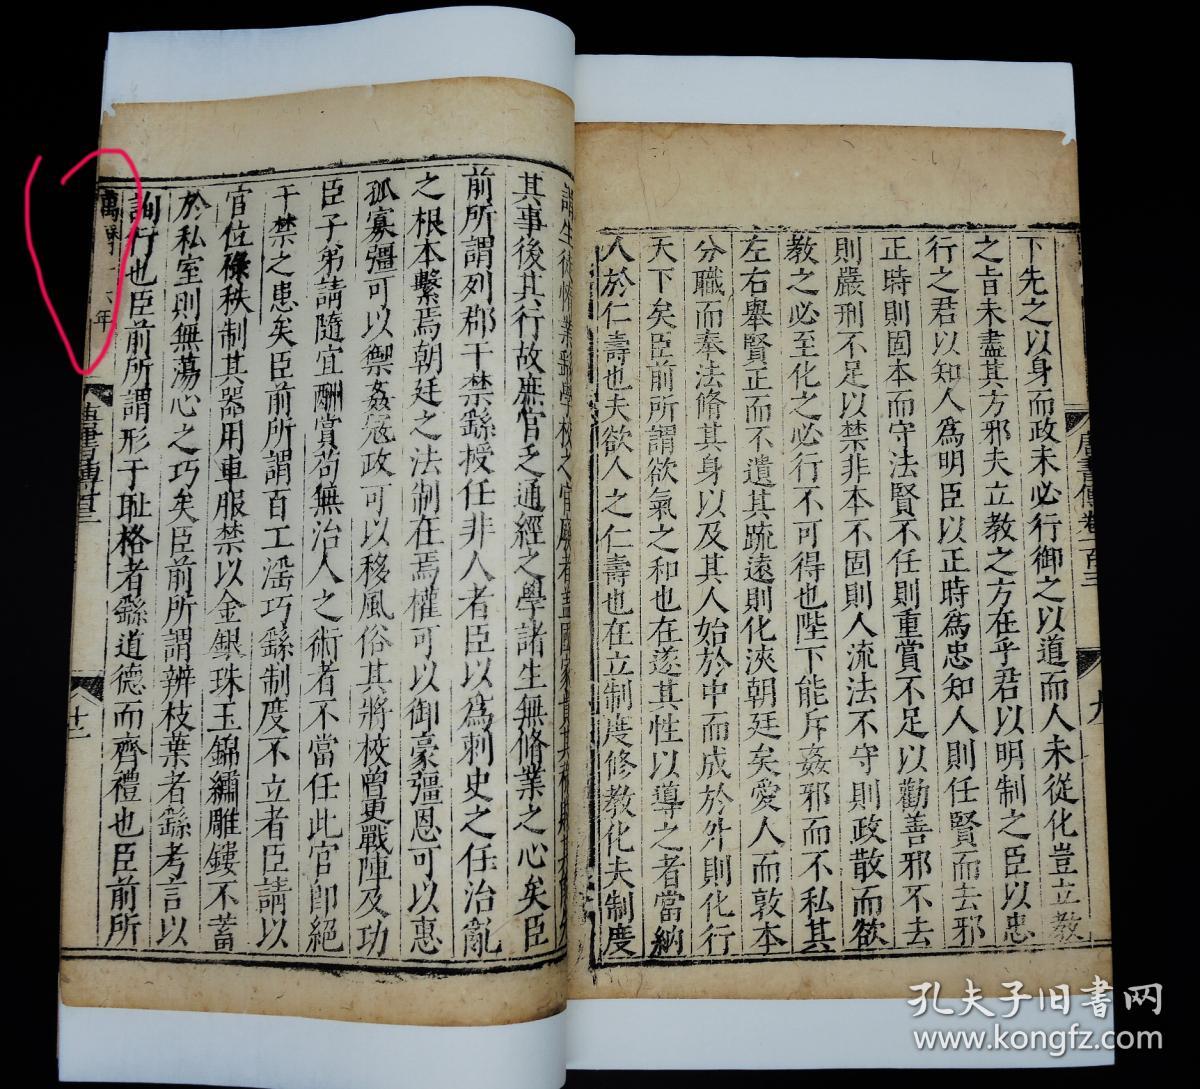 唐書傳卷一百三
九
下先之以身而政未必行御之以道而人未從化豈立教
之旨未盡其方邪夫立教之方在乎君以明制之臣以忠
行之君以知人為明臣以正時為忠知人則任賢而去邪
正時則固本而守法賢不任則重賞不足以勸善邪不去
則嚴刑不足以禁非本不固則人流法不守則政散而欲
教之必至化之必行不可得也陛下能斥姦邪而不私其
左右舉賢正而不遺其疏遠則化浹朝廷矣愛人而敦本
分職而奉法脩其身以及其人始於中而成於外則化行
天下矣臣前所謂欲氣之和也在遂其性以導之者當納
人於仁壽也夫欲人之仁壽也在立制度修教化夫制度
其事後其行故庶官乏通經之學諸生無脩業之心矣臣
前所謂列郡干禁繇授任非人者臣以為刺史之任治亂
之根本繫焉朝廷之法制在焉權可以御豪彊恩可以惠
孤寡彊可以禦姦寇政可以移風俗其將校曾更戰陣及功
臣子弟請隨宜酬賞苟無治人之術者不當任此官即絕
干禁之患矣臣前所謂百工淫巧繇制度不立者臣請以
官位祿秩制其器用車服禁以金銀珠玉錦繡雕鏤不蓄
於私室則無蕩心之巧矣臣前所謂辨枝葉者繇考言以
詢行也臣前所謂形于耻格者繇道德而齊禮也臣前所
年
孔夫子旧書网
www.kongfz.com